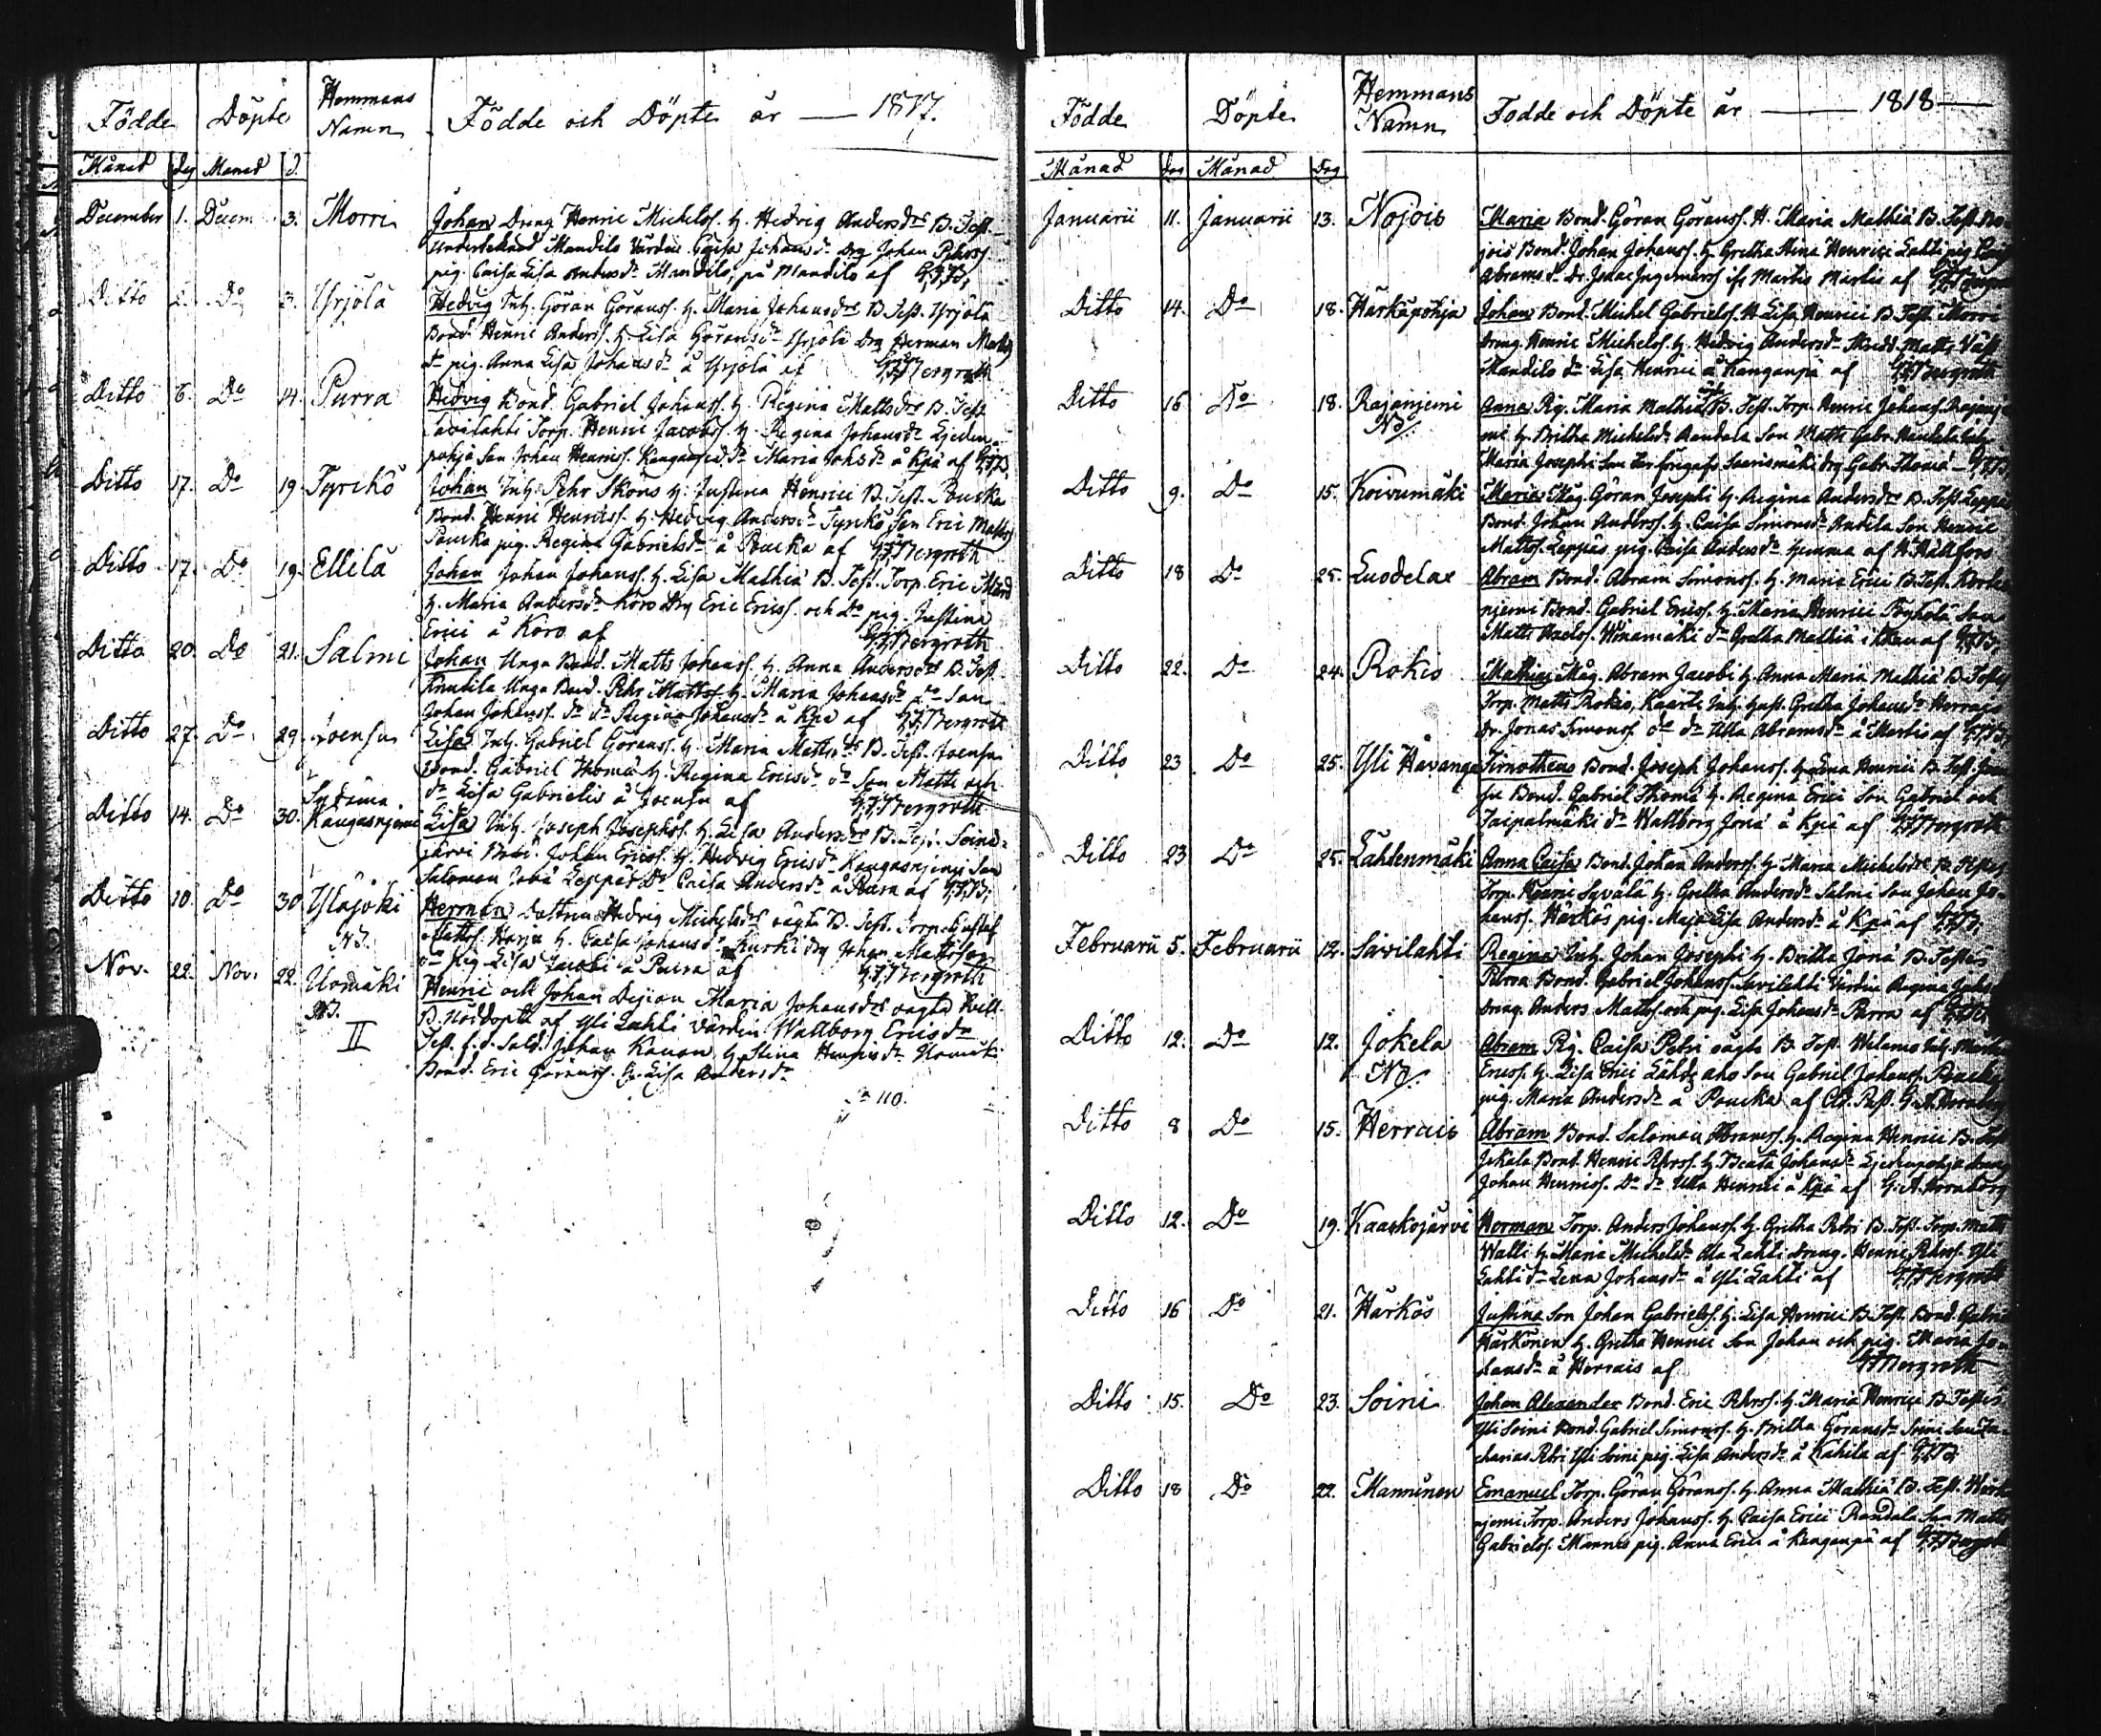 Födde Döpte Hemmans Namn Födde och Döpte år — 1817.
Månad Dag Månad D.
December 1. Decem 3. Morri Johan Dräng Henric Michelss. H. Hedvig Andersdr B. Test.
Mandila Värdin Caisa Johansdr Drg Johan Pehrss
pig. Caisa Lisa Andersdr Mandila, på Mandila af G.F.B.
Ditto 2. Do 3. Yrjölä Hedvig Inh. Göran Göranss. H. Maria Johansdr B. Test. Yrjölä
Bond. Henric Anderss. H. Lisa Göransdr Yrjölä Drg Herman
do pig. Anna Lisa Johansdr å Yrjölä af G.F. Bergroth
Ditto 6. Do 14. Purra Hedvig Bond. Gabriel Johanss. H. Regina Mattsdr B. Test.
Savilahti Torp. Henric Jacobss. H. Regina Johansdr Ljeden-
pohja Son Johan Henricss. Maria Johsdr å Kpä af G.F.B.
Ditto 17. Do 19. Tyrikö Johan Inh. Pehr Sköns H. Justina Henrici B. Test. Poucka
Bond. Henric Henricss. H. Hedvig Andersdr Tyrikö Son Eric Mattss
Poucka pig. Regina Gabrielsdr å Poucka af G.F. Bergroth
Ditto 17. Do 19. Ellilä Johan Johan Johanss. H. Lisa Mathiæ B. Test. Torp. Eric
H. Maria Andersdr Koro Drg Eric Ericss. och Do pig. Justina
Erici å Koro af G.F. Bergroth
Ditto 20. Do 21. Salmi Johan Unga Bond. Matts Johanss. H. Anna Andersdr B. Test.
Knutila Unga Bond. Pehr Mattss. H. Maria Johansdr do Son
Johan Johanss. do do Regina Johansdr å Kpä af G.F. Bergroth
Ditto 27. Do 29. Joensu Lisa Inh. Gabriel Göranss. H. Maria Mattsdr B. Test. Joensu
Bond. Gabriel Thomæ H. Regina Ericsdr do Son Matts och
do Lisa Gabrielis å Joensu af G.F. Bergroth
Ditto 14. Do 30. Kangasnjemi Lisa Inh. Joseph Josephss. H. Lisa Andersdr B. Test. Seinä-
järvi Bond. Johan Ericss. H. Hedvig Ericsdr Kangasnjemi Son
Salomon Leppäs Do Caisa Andersdr å Pura af G.F.B.
Ditto 10. Do 30 Yläjoki Herman Hedvig Michelsdr oägta B. Test. Torp. Gustaf
NB. Mattss. Harju H. Caisa Johansdr Kurki drg Johan Mattsson
do pig Lisa Jacobi å Pura af G.F. Bergroth
Nov. 22. Nov. 22. Uomäki Henric och Johan Dejian Maria Johansdr oägta
NB. B. nöddöpte af Yli Lahti Värdin Wallborg Ericsdr
II Test. f.d. Sold. Johan Kauan H. Stina Henricsdr Uomäki
Bond. Eric Göranss. H. Lisa Andersdr
110.
Födde Döpte Hemmans Namn Fodde och Döpte år — 1818 —
Månad Dag Månad Dag
Januarii 11. Januarii 13. Nojois Maria Bond. Göran Göranss. H. Maria Mathiæ B. Test. No-
jois Bond. Johan Johanss. H. Gretha Stina Henrici Lahti pig
Abramsdr dr. Isaac Ingemarss ifr Martis Martis af
Ditto 14. Do 18. Härkäpohja Johan Bond. Michel Gabrielss. H. Lisa Henrici B. Test. Morri
dräng. Henric Michelss. H. Hedvig Andersdr Matts
Mandila do Lisa Henrici å Kanganpä af G.F. Bergroth
Ditto 16 Do 18. Rajanjemi Anna Pig. Maria Mathiæ B. Test. Torp. Henric Johanss. Rajanje-
NB. mi H. Britha Michelsdr Randala Son Matts Gabr.
Maria Josephi Son Saarismäki drg Gabr. Thomæ G.F.B.
Ditto 9. Do 15. Koivumäki Maria Måg. Göran Josephi H. Regina Andersdr B. Test. Leppäs
Bond. Johan Anderss. H. Caisa Simonsdr Andila Son Henric
Mattss. Leppäs pig. Caisa Andersdr hemma af H. Hällfors
Ditto 18 Do 25. Luodelax Abram Bond. Abram Simonss. H. Maria Erici B. Test.
njemi Bond. Gabriel Ericss. H. Maria Henrici Pöyhölä Son
Matts Axelss. do Gretha Mathiæ af G.F.B.
Ditto 22. Do 24. Rokis Mathias Måg. Abram Jacobi H. Anna Maria Mathiæ B. Testes
Torp. Matts Rokis, Inh. Hust. Gretha Johansdr Herrais
dr. Jonas Simonss do do Ulla Abramsdr å Martis af G.F.B.
Ditto 23 Do 25. Yli Havanga Timotheus Bond. Joseph Johanss. H. Lena Henrici B. Test. Joen-
su Bond. Gabriel Thomæ H. Regina Erici Son Gabriel och
Taipalmäki do Wallborg Jonæ å Kpä af G.F. Bergroth
Ditto 23 Do 25. Lähdenmäki Anna Caisa Bond. Johan Anderss. H. Maria Michelsdr B. Testes
Torp. Henric Syvälä H. Gretha Andersdr Salmi Son Johan Jo-
hanss. Härkös pig. Maja Lisa Andersdr å Kpä af G.F.B.
Februarii 5. Februarii 12. Savilahti Regina Inh. Johan Josephi H. Britha Jonæ B. Testes
Purra Bond. Gabriel Johanss. Savilahti Värdin Regina
dräng. Anders Mattss. och pig. Lisa Johansdr Purra af
Ditto 12. Do 12. Jokela Abram Pig. Caisa Petri oägta B. Test. Inh.
NB. Ericss. H. Lisa Erici Lähdeaho Son Gabriel Johanss.
pig. Maria Andersdr å Poucka af
Ditto 8 Do 15. Herrais Abram Bond. Salomon Abramss. H. Regina Henrici B. Test.
Jokela Bond. Henric Pehrss. H. Beata Johansdr Ljedenpohja dräng
Johan Henricss. Do do Ulla Henrici å Kpä af G.A. Hornborg
Ditto 12. Do 19. Kaaskojärvi Herman Torp. Anders Johanss. H. Gretha Petri B. Test. Torp. Matts
Walli H. Maria Michelsdr Ala Lahti dräng. Henric Pehrss. Yli
Lahti do Lena Johansdr å Yli Lahti af G.F. Bergroth
Ditto 16 Do 21. Härkös Justina Son Johan Gabrielss. H. Lisa Henrici B. Test. Bond. Gabriel
Härkönen H. Gretha Henrici Son Johan och pig. Maria Jo-
hansdr å Herrais af G.F. Bergroth
Ditto 15. Do 23. Soini Johan Alexander Bond. Eric Pehrss. H. Maria Henrici B. Testes
Yli Soini Bond. Gabriel Simonss. H. Britha Göransdr Soini Son Za-
charias Petri Yli Soini pig. Lisa Andersdr å Kahila af G.F.B.
Ditto 18 Do 22. Mannünen Emanuel Torp. Göran Göranss. H. Anna Mathiæ B. Test.
njemi Torp. Anders Johanss. H. Caisa Erici Randala Son Matts
Gabrielss. Mannes pig. Anna Erici å Kanganpä af G.F. Bergroth